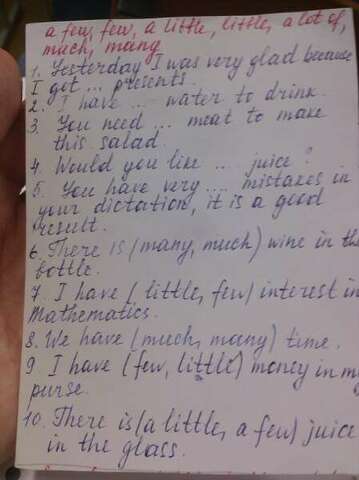 a few, few, a little, little, a lot of,
much, many
1. Yesterday I was very glad because
I got ... presents.
2. I have ... water to drink.
3. You need ... meat to make
this salad.
4. Would you like .... juice?
5. You have very .... mistakes in
your dictation, it is a good
result.
6. There is (many, much) wine in the
bottle.
7. I have (little, few) interest in
Mathematics.
8. We have (much, many) time.
9 I have (few, little) money in m
purse.
10. There is (a little, a few) juice
in the glass.